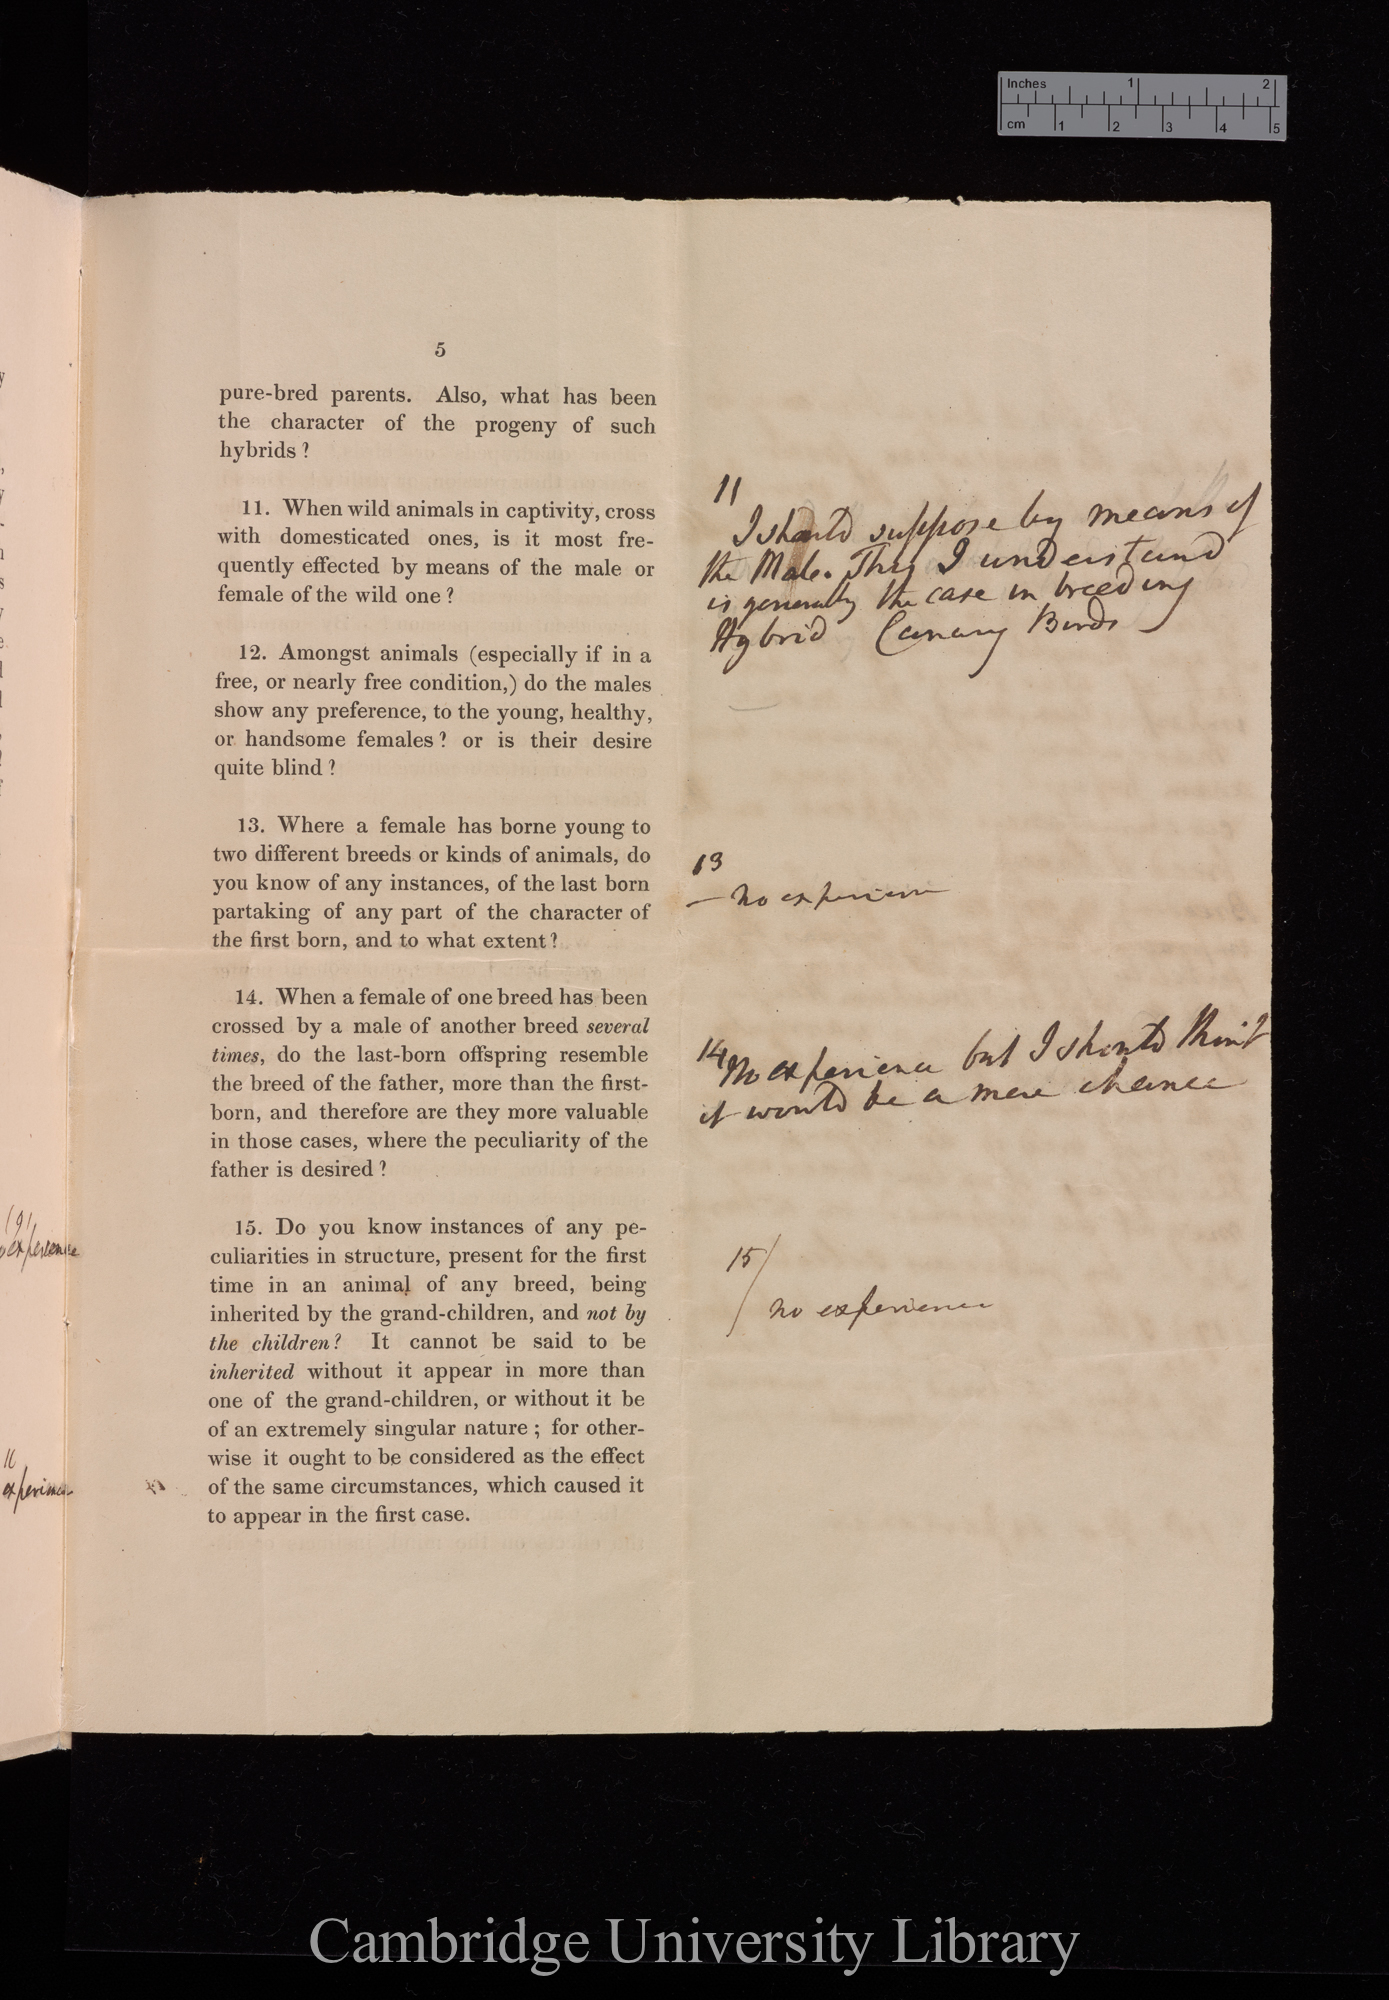 Inches 1 2
cm 1 2 3 4 5
5
pure-bred parents. Also, what has been
the character of the progeny of such
hybrids ?
11. When wild animals in captivity, cross
with domesticated ones, is it most fre-
quently effected by means of the male or
female of the wild one ?
12. Amongst animals (especially if in a
free, or nearly free condition,) do the males
show any preference, to the young, healthy,
or handsome females ? or is their desire
quite blind ?
13. Where a female has borne young to
two different breeds or kinds of animals, do
you know of any instances, of the last born
partaking of any part of the character of
the first born, and to what extent ?
14. When a female of one breed has been
crossed by a male of another breed several
times, do the last-born offspring resemble
the breed of the father, more than the first-
born, and therefore are they more valuable
in those cases, where the peculiarity of the
father is desired ?
15. Do you know instances of any pe-
culiarities in structure, present for the first
time in an animal of any breed, being
inherited by the grand-children, and not by
the children? It cannot be said to be
inherited without it appear in more than
one of the grand-children, or without it be
of an extremely singular nature ; for other-
wise it ought to be considered as the effect
of the same circumstances, which caused it
to appear in the first case.
11
I should suppose by means of
the Male. This I understand
is generally the case in breeding
Hybrid Canary Birds
13
— no experience
14 No experience but I should think
it would be a mere chance
15/
no experience
experience
experience
Cambridge University Library